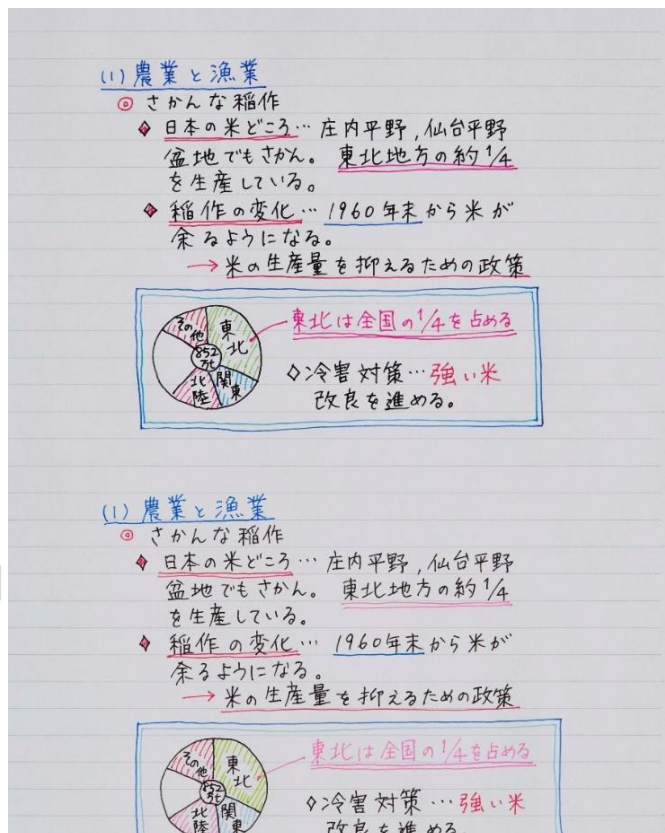 (1) 農業と漁業
◎ さかんな稲作
◆ 日本の米どころ… 庄内平野,仙台平野
盆地でもさかん。 東北地方の約1/4
を生産している。
◆ 稲作の変化… 1960年末から米が
余るようになる。
→ 米の生産量を抑えるための政策
その他
東北
852万t
関東
北陸
東北は全国の1/4を占める
◇冷害対策…強い米
改良を進める。
(1) 農業と漁業
◎ さかんな稲作
◆ 日本の米どころ… 庄内平野,仙台平野
盆地でもさかん。 東北地方の約1/4
を生産している。
◆ 稲作の変化… 1960年末から米が
余るようになる。
→ 米の生産量を抑えるための政策
その他
東北
852万t
関東
北陸
東北は全国の1/4を占める
◇冷害対策…強い米
改良を進める。